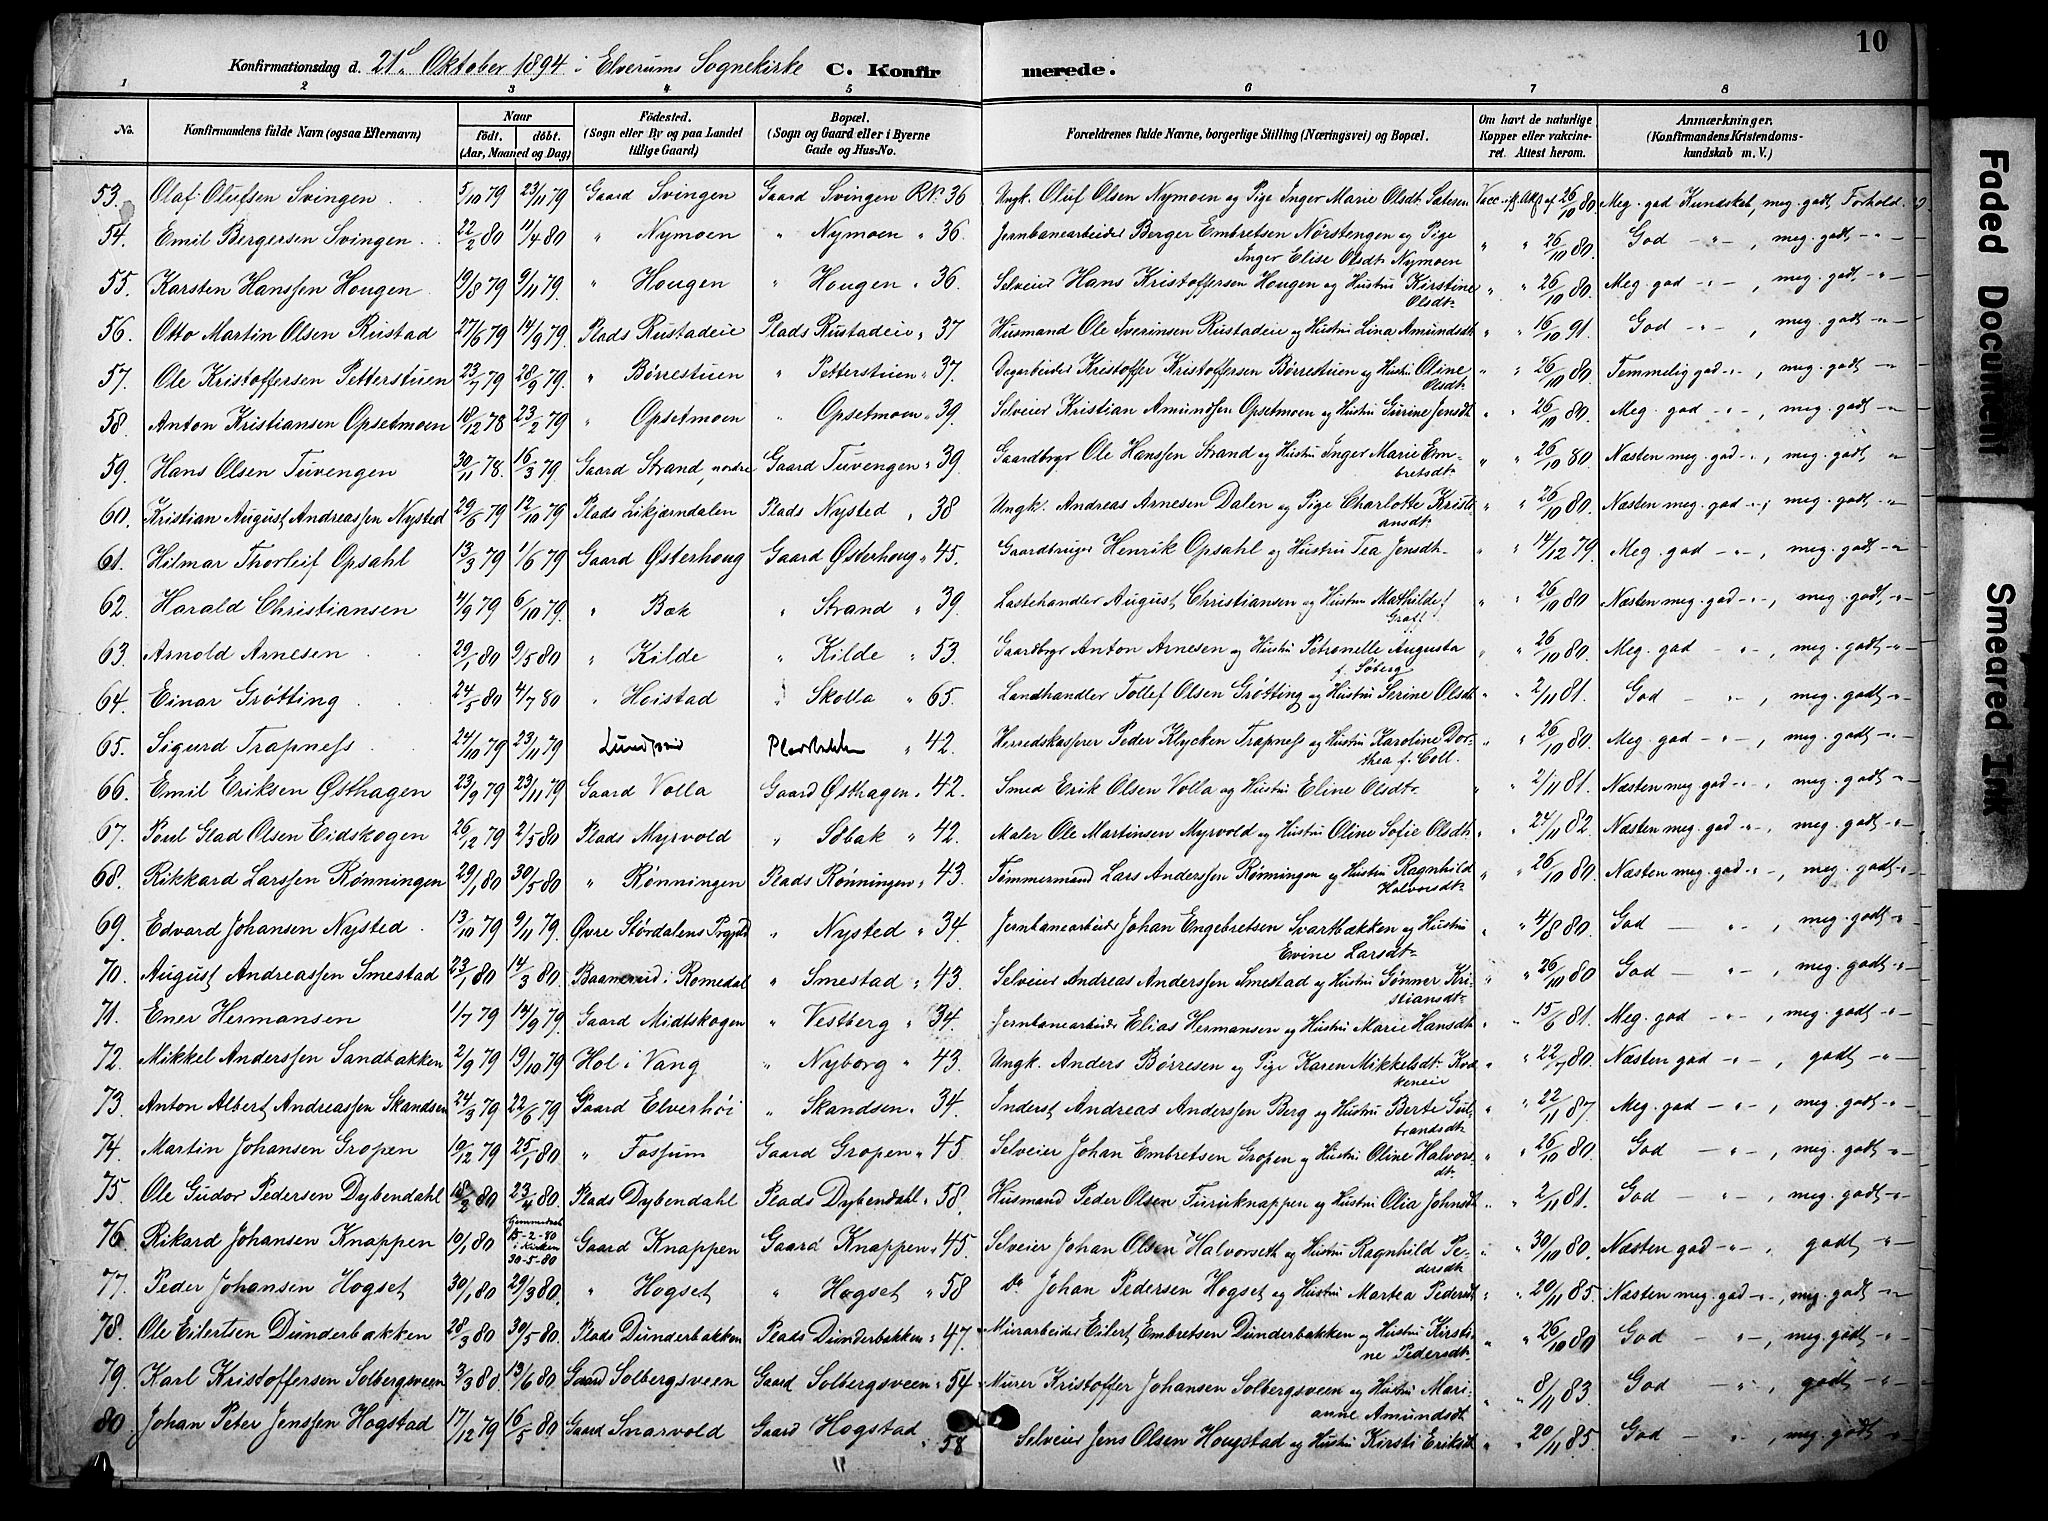 10
Konfirmationsdag d. 21de Oktober 1894 i Elverums Sognekirke C. Konfirmerede.
1 2 3 4 5 6 7 8
No. Konfirmandens fulde Navn (ogsaa Efternavn) Naar født. døbt. (Aar, Maaned og Dag) Fødested. (Sogn eller By og paa Landet tillige Gaard) Bopæl. (Sogn og Gaard eller i Byerne Gade og Hus-No. Forældrenes fulde Navne, borgerlige Stilling (Næringsvei) og Bopæl. Om havt de naturlige Kopper eller vakcineret. Attest herom. Anmærkninger. (Konfirmandens Kristendomskundskab m. V.)
53. Olaf Olufsen Svingen 5/10 79 23/11 79 Gaard Svingen Gaard Svingen RN. 36 Ungk. Oluf Olsen Nymoen og Pige Inger Marie Olsdt. Sætersen Vacc. af 26/10 80. Meg. god Kundskab, meg. godt Forhold.
54. Emil Bergersen Svingen 22/2 80 11/4 80 " Nymoen " Nymoen " 36. Jernbanearbeider Berger Embretsen Nørstengen og Pige Inger Elise Olsdt. Nymoen " " 26/10 80. God - " -, meg. godt - " -
55. Karsten Hanssen Hougen 19/8 79 9/11 79. " Hougen " Hougen " 36. Selveier Hans Kristoffersen Hougen og Hustru Kirstine Olsdt. " " 26/10 80. Meg. god - " -, meg. godt - " -
56. Otto Martin Olsen Rustad 27/6 79 14/9 79. Plads Rustadeie Plads Rustadeie " 37 Husmand Ole Iverinsen Rustadeie og Hustru Lina Amundsdt. " " 16/10 91. God - " -, meg. godt - " -
57. Ole Kristoffersen Petterstuen 23/7 79 28/9 79. " Børrestuen " Petterstuen " 37. Dagarbeider Kristoffer Kristoffersen Børrestuen og Hustru Oline Olsdt. " " 26/10 80. Temmelig god - " -, meg. godt - " -
58. Anton Kristiansen Opsetmoen 18/12 78 23/2 79. " Opsetmoen " Opsetmoen " 39. Selveier Kristian Amundsen Opsetmoen og Hustru Gurine Jensdt. " " 26/10 80. Meg. god - " -, meg. godt - " -
59. Hans Olsen Tuvengen 30/11 78. 16/3 79 Gaard Strand, nordre Gaard Tuvengen " 39. Gaardbrgr Ole Hanssen Strand og Hustru Inger Marie Embretsdt. " " 26/10 80. Næsten meg. god - " -, meg. godt "
60. Kristian August Andreassen Nysted 29/6 79 12/10 79 Plads Likjærndalen Plads Nysted " 38 Ungk. Andreas Arnesen Dalen og Pige Charlotte Kristiansdt. " " 26/10 80. Næsten meg. god - " -, meg. godt - " -
61. Hilmar Thorleif Opsahl 13/3 79 1/6 79 Gaard Østerhoug Gaard Østerhoug " 45. Gaardbruger Henrik Opsahl og Hustru Tea Jensdt. " " 14/12 79. Meg. god - " -, meg. godt - " -
62. Harald Christiansen 4/9 79 6/10 79. " Bæk " Strand " 39. Lastehandler August Christiansen og Hustru Mathilde f. Graff " " 26/10 80 Næsten meg. god - " -, meg. godt, - " -
63. Arnold Arnesen 29/1 80 9/5 80 " Kilde " Kilde " 53. Gaardbrgr Anton Arnesen og Hustru Petronelle Augusta f. Søberg " " 26/10 80. Meg. god - " -, meg. godt - " -
64. Einar Grøtting 24/5 80 4/7 80 " Hoistad " Skolla " 65. Landhandler Tollef Olsen Grøtting og Hustru Serine Olsdt. " " 2/11 81. God - " -, meg. godt - " -
65. Sigurd Trapness 24/10 79 23/11 79 42. Herredskasserer Peder Klycken Trapness og Hustru Karoline Dorthea f. Coll. " " 26/10 80. Meg. god - " -, meg. godt - " -
66. Emil Eriksen Østhagen 23/9 79 23/11 79 Gaard Volla Gaard Østhagen " 42. Smed Erik Olsen Volla og Hustru Eline Olsdt. " " 2/11 81. Næsten meg. god - " -, meg. godt - " -
67. Poul Glad Olsen Eidskogen 26/12 79 2/5 80 Plads Myrvold " Søbak " 42. Maler Ole Martinsen Myrvold og Hustru Oline Sofie Olsdt. " " 24/11 82. Næsten meg. god - " -, meg. godt - " -
68. Rikkard Larssen Rønningen 29/1 80 30/5 80 " Rønningen Plads Rønningen " 43. Tømmermand Lars Anderssen Rønningen og Hustru Ragnhild Halvorsdt. " " 26/10 80. Næsten meg. god - " -, meg. godt - " -
69. Edvard Johansen Nysted 13/10 79 9/11 79. Øvre Størdalens Prgjeld " Nysted " 34. Jernbanearbeider Johan Engebretsen Svartbækken og Hustru Evine Larsdt. " " 4/8 80. God - " -, meg. godt - " -
70. August Andreassen Smestad 23/1 80 14/3 80. Baanerud i Romedal " Smestad " 43. Selveier Andreas Anderssen Smestad og Hustru Gønner Kristiansdt. " " 26/10 80 God - " -, meg. godt - " -
71. Ener Hermansen 1/7 79 14/9 79. Gaard Midtskogen " Vestberg " 34. Jernbanearbeider Elias Hermansen og Hustru Marie Hansdt. " " 15/6 81. Meg. god - " -, meg. godt - " -
72. Mikkel Anderssen Sandbakken 2/9 79 19/10 79 Hol i Vang " Nyborg " 43. Ungk. Anders Børresen og Pige Karen Mikkelsdt. " " 22/7 80. Næsten god - " -, godt - " -
73. Anton Albert Andreassen Skandsen 24/3 79 22/6 79 Gaard Elverhøi " Skandsen " 34. Inderst Andreas Anderssen Berg og Hustru Berte Gulbrandsdt. " " 22/11 87. Meg. god - " -, meg. godt - " -
74. Martin Johansen Gropen 19/12 79 25/1 80. " Fossum Gaard Gropen " 45. Selveier Johan Embretsen Gropen og Hustru Oline Halvorsdt. " " 26/10 80. God - " -, meg. godt - " -
75. Ole Gudor Pedersen Dybendahl 18/2 80 23/4 80. Plads Dybendahl Plads Dybendahl " 58. Husmand Peder Olsen Furuknappen og Hustru Olia Johnsdt. " " 2/11 81. God - " -, meg. godt - " -
76. Rikard Johansen Knappen 10/1 80 Hjemmedøbt 15-2-80 i Kirken 30-5-80 Gaard Knappen Gaard Knappen " 45 Selveier Johan Olsen Halvorseth og Hustru Ragnhild Pedersdt. " " 30/10 80. Næsten god - " -, godt - " -
77. Peder Johansen Hogset 30/1 80 29/3 80. " Hogset " Hogset " 58 do. Johan Pedersen Hogset og Hustru Martea Pedersdt. " " 20/11 85. Næsten meg. god - " -, meg. godt - " -
78. Ole Eilertsen Dunderbakken 28/3 80 30/5 80. Plads Dunderbakken Plads Dunderbakken " 47. Murarbeider Eilert Embretsen Dunderbakken og Hustru Kirstine Pedersdt. " " 26/10 80 God - " -, meg. godt - " -
79. Karl Kristoffersen Solbergsveen 3/3 80. 13/6 80. Gaard Solbergsveen Gaard Solbergsveen " 54 Murer Kristoffer Johansen Solbergsveen og Hustru Marianne Amundsdt. " " 8/11 83. God - " -, godt - " -
80. Johan Peter Jenssen Hogstad 17/12 79 16/5 80. Gaard Snarvold Gaard Hogstad " 58 Selveier Jens Olsen Hougstad og Hustru Kirsti Eriksdt. " " 20/11 85. God - " -, meg. godt - " -
Faded Document
Smeared Ink